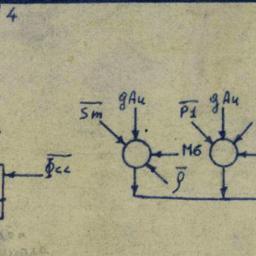 4
S̅m̅ gAu P̅1̅ gAu
M6
Φ̅c̅c̅
ρ̅